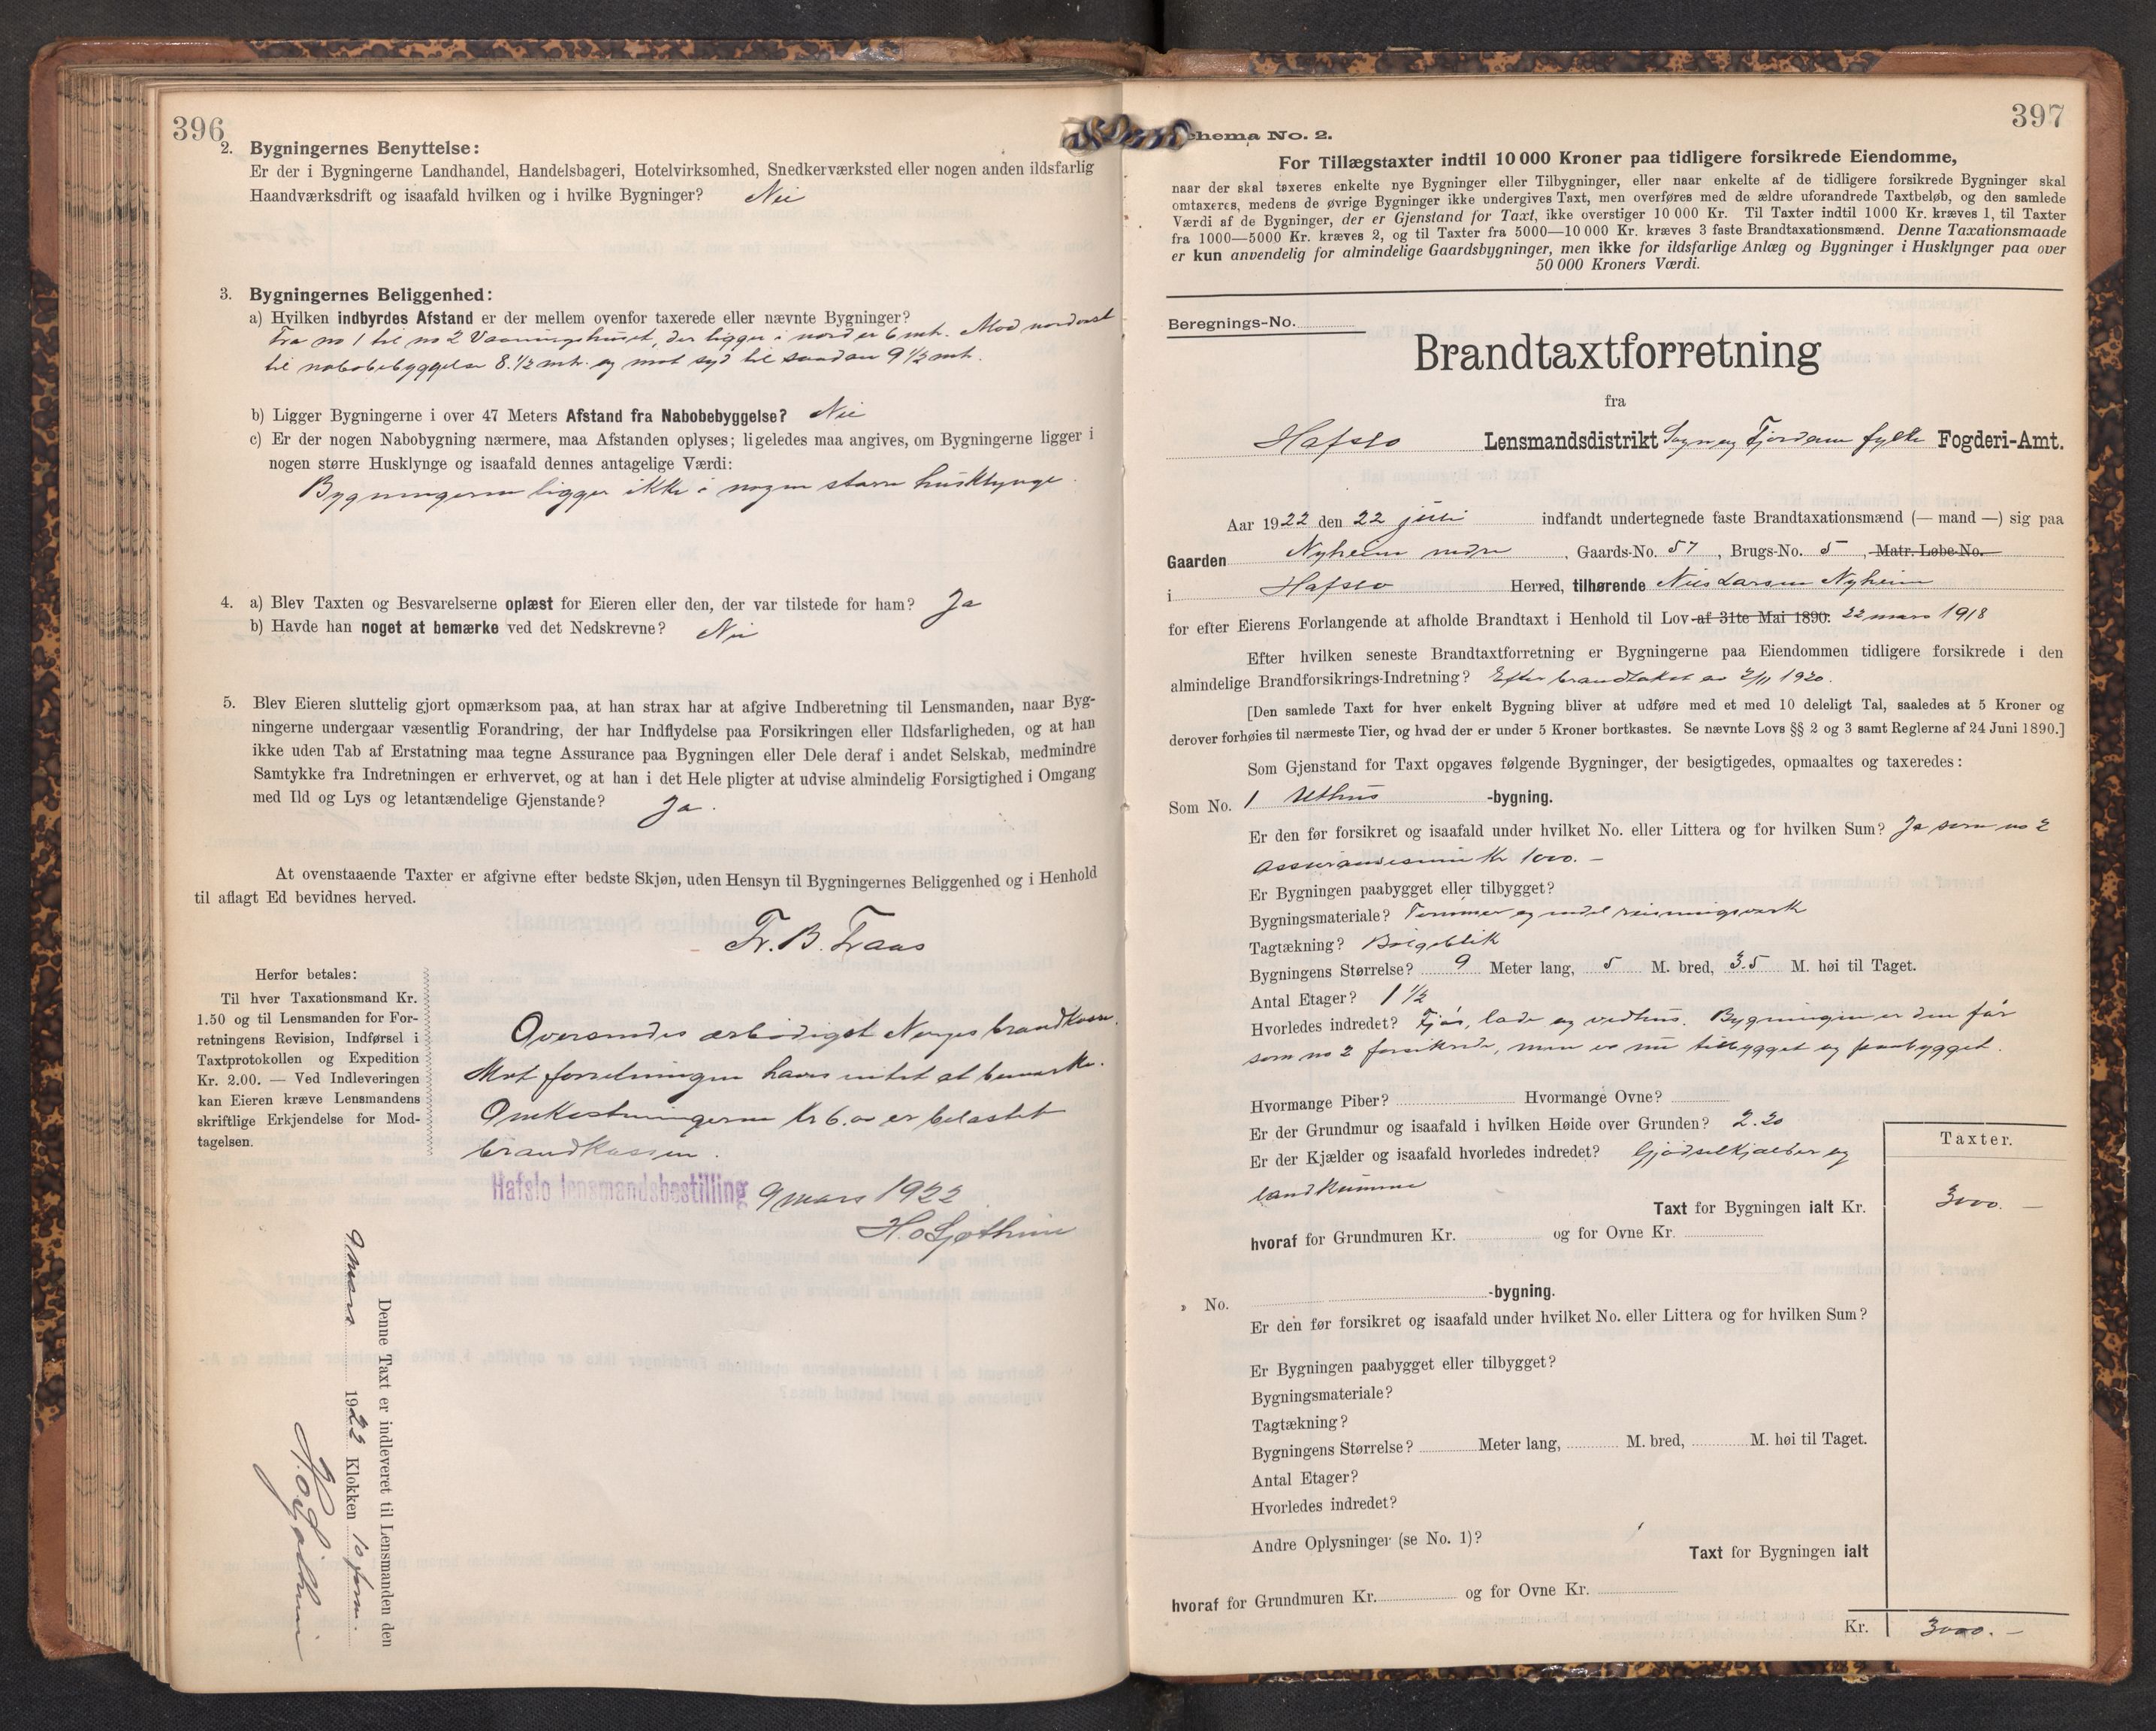 396
2. Bygningernes Benyttelse:
Er der i Bygningerne Landhandel, Handelsbageri, Hotelvirksomhed, Snedkerværksted eller nogen anden ildsfarlig
Haandværksdrift og isaafald hvilken og i hvilke Bygninger? Nei
3. Bygningernes Beliggenhed:
a) Hvilken indbyrdes Afstand er der mellem ovenfor taxerede eller nævnte Bygninger?
Fra no 1 til no 2 Vaaningshuset, der ligger i nord er 6 mtr. Mod nordost
til nabobebyggelse 8.1/2 mtr. og mot syd til saadan 9 1/2 mtr.
b) Ligger Bygningerne i over 47 Meters Afstand fra Nabobebyggelse? Nei
c) Er der nogen Nabobygning nærmere, maa Afstanden oplyses; ligeledes maa angives, om Bygningerne ligger i
nogen større Husklynge og isaafald dennes antagelige Værdi:
Bygningerne ligger ikke i nogen større husklynge.
4. a) Blev Taxten og Besvarelserne oplæst for Eieren eller den, der var tilstede for ham? Ja
b) Havde han noget at bemærke ved det Nedskrevne? Nei
5. Blev Eieren sluttelig gjort opmærksom paa, at han strax har at afgive Indberetning til Lensmanden, naar Byg-
ningerne undergaar væsentlig Forandring, der har Indflydelse paa Forsikringen eller Ildsfarligheden, og at han
ikke uden Tab af Erstatning maa tegne Assurance paa Bygningen eller Dele deraf i andet Selskab, medmindre
Samtykke fra Indretningen er erhvervet, og at han i det Hele pligter at udvise almindelig Forsigtighed i Omgang
med Ild og Lys og letantændelige Gjenstande? Ja.
At ovenstaaende Taxter er afgivne efter bedste Skjøn, uden Hensyn til Bygningernes Beliggenhed og i Henhold
til aflagt Ed bevidnes herved.
Fr. B. Fraas
Herfor betales:
Til hver Taxationsmand Kr.
1.50 og til Lensmanden for For-
retningens Revision, Indførsel i
Taxtprotokollen og Expedition
Kr. 2.00. — Ved Indleveringen
kan Eieren kræve Lensmandens
skriftlige Erkjendelse for Mod-
tagelsen.
Oversendes ærbødigst Norges brandkasse.
Mot forretningen haves intet at bemerke.
Omkostningerne kr 6.00 er belastet
brandkassen.
Hafslo lensmandsbestilling 9 mars 1922
Denne Taxt er indleveret til Lensmanden den
9 mars 1922 Klokken 10 form.
397
Schema No. 2.
For Tillægstaxter indtil 10 000 Kroner paa tidligere forsikrede Eiendomme,
naar der skal taxeres enkelte nye Bygninger eller Tilbygninger, eller naar enkelte af de tidligere forsikrede Bygninger skal
omtaxeres, medens de øvrige Bygninger ikke undergives Taxt, men overføres med de ældre uforandrede Taxtbeløb, og den samlede
Værdi af de Bygninger, der er Gjenstand for Taxt, ikke overstiger 10 000 Kr. Til Taxter indtil 1000 Kr. kræves 1, til Taxter
fra 1000—5000 Kr. kræves 2, og til Taxter fra 5000—10 000 Kr. kræves 3 faste Brandtaxationsmænd. Denne Taxationsmaade
er kun anvendelig for almindelige Gaardsbygninger, men ikke for ildsfarlige Anlæg og Bygninger i Husklynger paa over
50 000 Kroners Værdi.
Beregnings-No.
Brandtaxtforretning
fra
Hafslo Lensmandsdistrikt Sogn og Fjordane fylke Fogderi-Amt.
Aar 1922 den 22 juli indfandt undertegnede faste Brandtaxationsmænd (— mand —) sig paa
Gaarden Nyheim nedre, Gaards-No. 57, Brugs-No. 5, Matr. Løbe-No.
i Hafslo Herred, tilhørende Nils Larsen Nyheim
for efter Eierens Forlangende at afholde Brandtaxt i Henhold til Lov af 31te Mai 1890. 22 mars 1918
Efter hvilken seneste Brandtaxtforretning er Bygningerne paa Eiendommen tidligere forsikrede i den
almindelige Brandforsikrings-Indretning? Efter brandtakst av 2/11 1920.
[Den samlede Taxt for hver enkelt Bygning bliver at udføre med et med 10 deleligt Tal, saaledes at 5 Kroner og
derover forhøies til nærmeste Tier, og hvad der er under 5 Kroner bortkastes. Se nævnte Lovs §§ 2 og 3 samt Reglerne af 24 Juni 1890.]
Som Gjenstand for Taxt opgaves følgende Bygninger, der besigtigedes, opmaaltes og taxeredes:
Som No. 1 Uthus -bygning.
Er den før forsikret og isaafald under hvilket No. eller Littera og for hvilken Sum? Ja som no 2
assurancesum kr 1000.-
Er Bygningen paabygget eller tilbygget?
Bygningsmateriale? Tømmer og endel reisningsverk
Tagtækning? Bølgeblik
Bygningens Størrelse? 9 Meter lang, 5 M. bred, 3.5 M. høi til Taget.
Antal Etager? 1 1/2
Hvorledes indredet? Fjøs, lade og vedhus. Bygningen er den før
som no 2 forsikrede, men er nu tilbygget og paabygget.
Hvormange Piber? Hvormange Ovne?
Er der Grundmur og isaafald i hvilken Høide over Grunden? 2.20
Er der Kjælder og isaafald hvorledes indredet? Gjødselkjælder og
landkumme
Taxter.
Taxt for Bygningen ialt Kr. 3000.—
hvoraf for Grundmuren Kr. og for Ovne Kr.
» No. -bygning.
Er den før forsikret og isaafald under hvilket No. eller Littera og for hvilken Sum?
Er Bygningen paabygget eller tilbygget?
Bygningsmateriale?
Tagtækning?
Bygningens Størrelse? Meter lang, M. bred, M. høi til Taget.
Antal Etager?
Hvorledes indredet?
Andre Oplysninger (se No. 1)?
Taxt for Bygningen ialt
hvoraf for Grundmuren Kr. og for Ovne Kr.
Kr. 3000.—